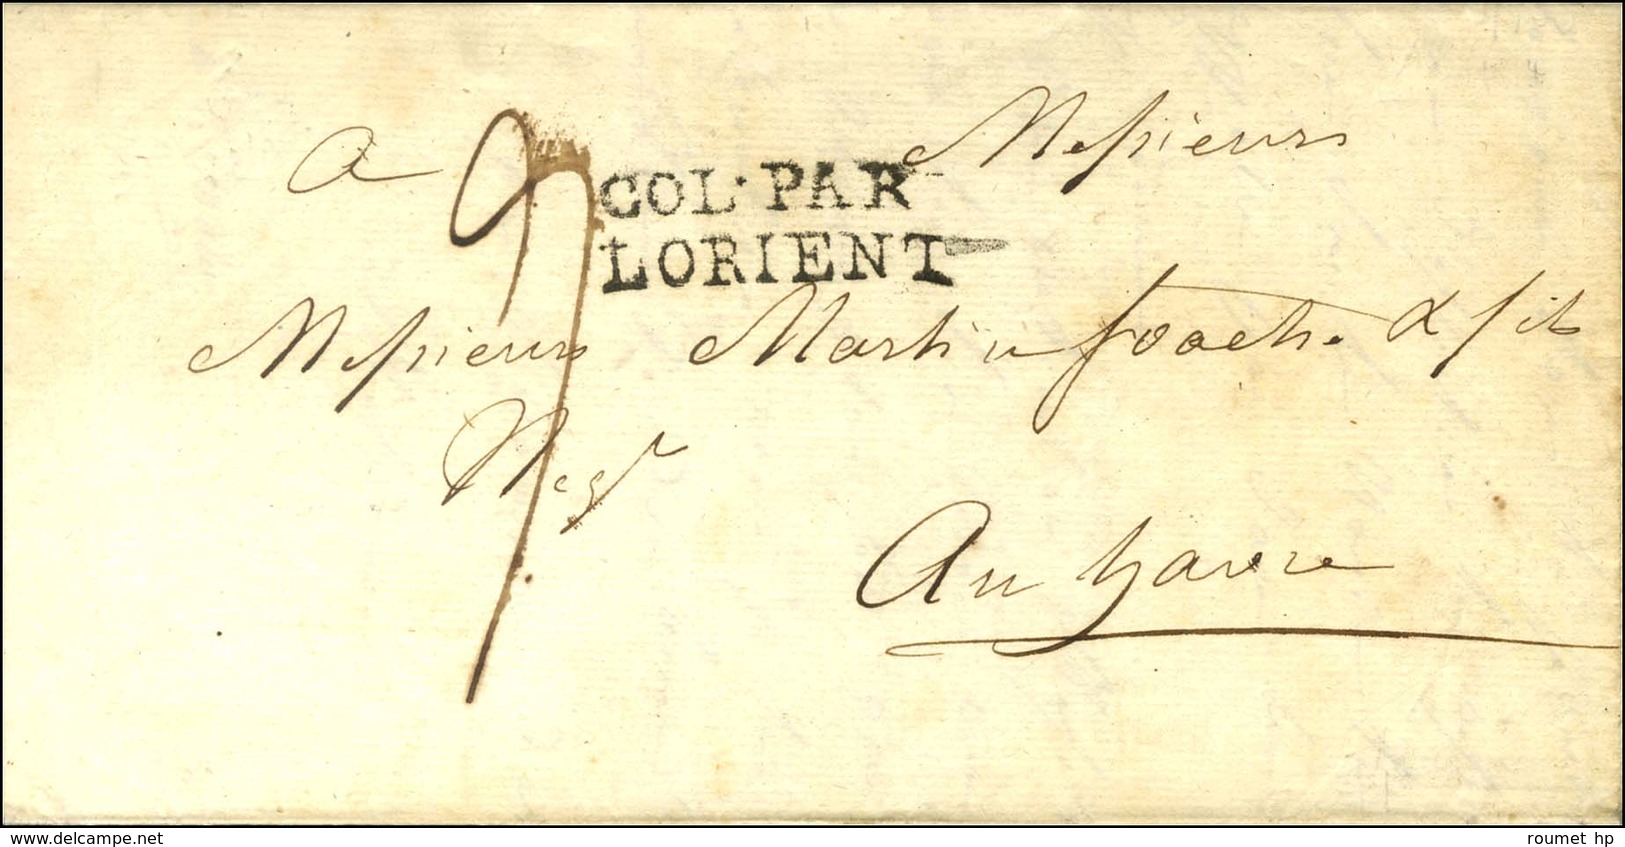 a Messieurs
COL·PAR
LORIENT
Messieurs Martin foache & fils
Negt
Au havre
www.delcampe.net
roumet hp